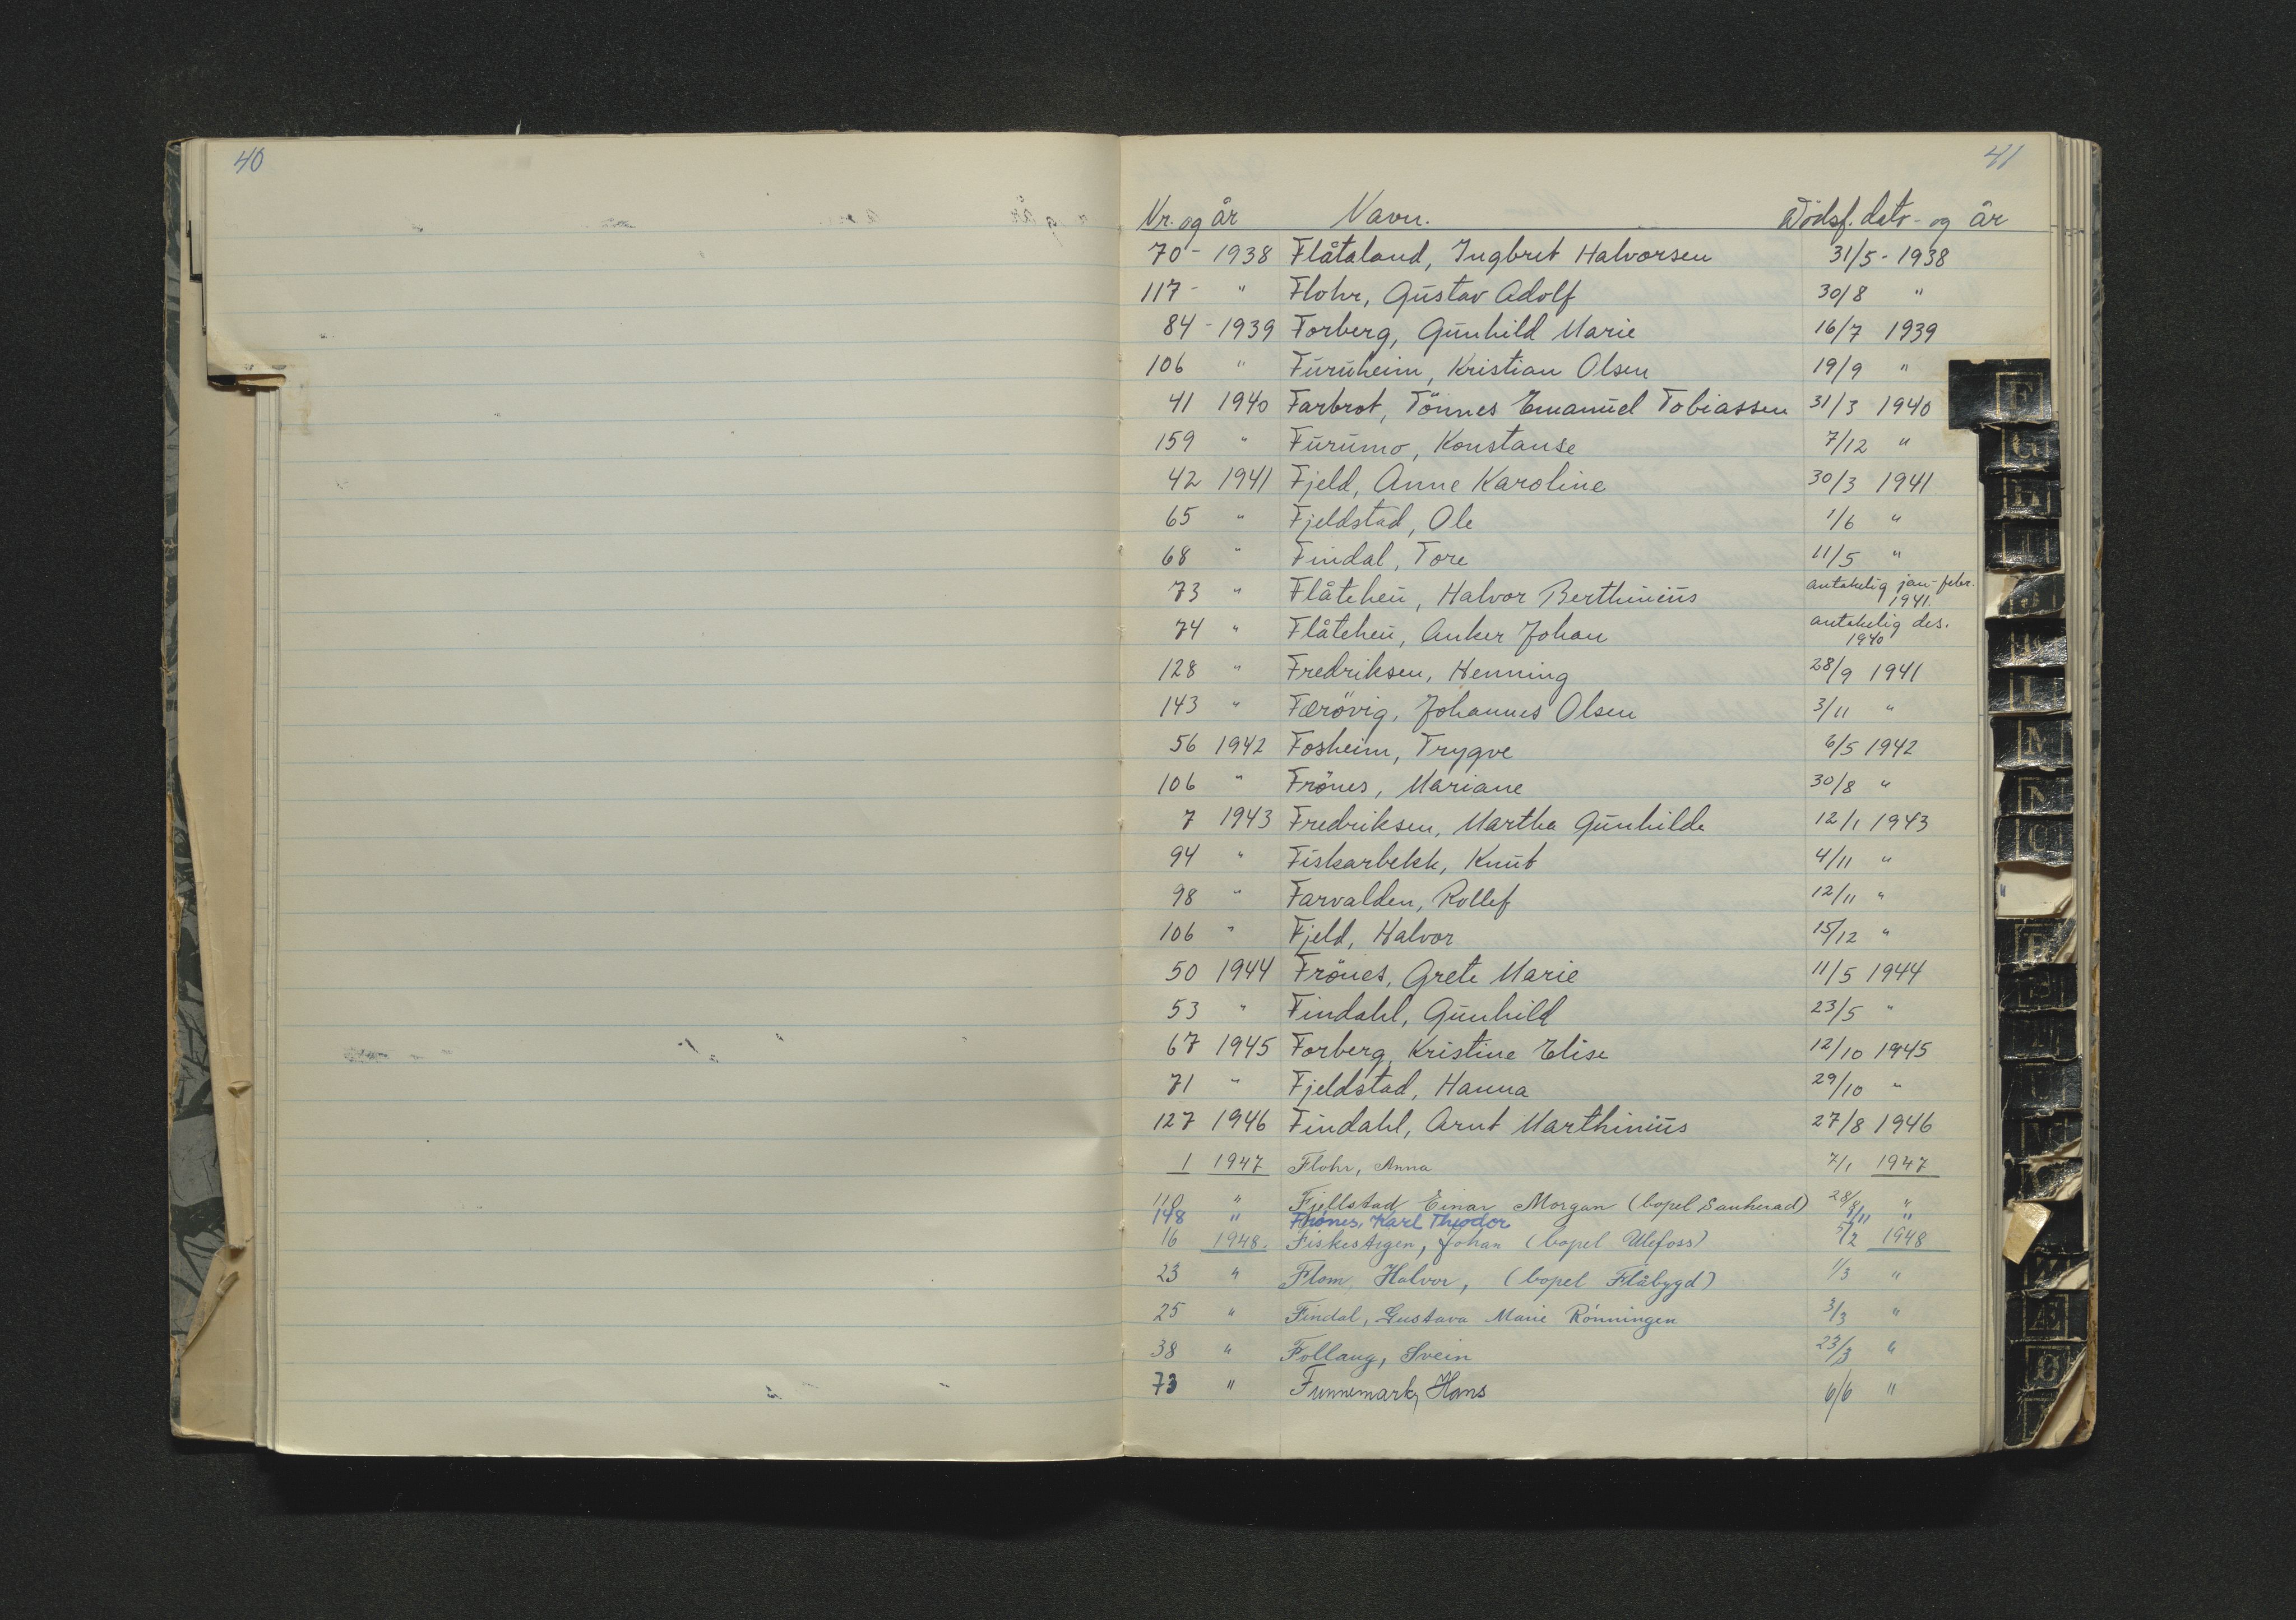 40
41
Nr. og år Navn. Dödsf. dato- og år
70 - 1938 Flåtaland, Ingbret Halvorsen 31/5 - 1938
117 - " Flohr, Gustav Adolf 30/8 "
84 - 1939 Forberg, Gunhild Marie 16/7 1939
106 " Furuheim, Kristian Olsen 19/9 "
41 1940 Farbrot, Tönnes Emanuel Tobiassen 31/3 1940
159 " Furumo, Konstanse 7/12 "
42 1941 Fjeld, Anne Karoline 30/3 1941
65 " Fjeldstad, Ole 1/6 "
68 " Findal, Tore 11/5 "
73 " Flåteheu, Halvor Berthinius antakelig jan-febr. 1941.
74 " Flåteheu, Anker Johan antakelig des. 1940
128 " Fredriksen, Henning 28/9 1941
143 " Færövig, Johannes Olsen 3/11 "
56 1942 Fosheim, Trygve 6/5 1942
106 " Frönes, Mariane 30/8 "
7 1943 Fredriksen, Martha Gunhilde 12/1 1943
94 " Fiskarbekk, Knut 4/11 "
98 " Farvalden, Rollef 12/11 "
106 " Fjeld, Halvor 15/12 "
50 1944 Frönes, Grete Marie 11/5 1944
53 " Findahl, Gunhild 23/5 "
67 1945 Forberg, Kristine Elise 12/10 1945
71 " Fjeldstad, Hanna 29/10 "
127 1946 Findahl, Arnt Marthinius 27/8 1946
1 1947 Flohr, Anna 7/1 1947
110 " Fjellstad Einar Morgan (bopel Sauherad) 28/8 "
148 " Frönes, Karl Theodor /11 "
16 1948. Fiskestegen, Johan (bopel Ulefoss) 5/2 1948
23 " Flom, Halvor, (bopel Flåbygd) 1/3 "
25 " Findal, Gustava Marie Rönningen 3/3 "
38 " Follaug, Svein 23/3 "
73 " Funnemark, Hans 6/6 "
F
G
H
I
J
K
L
M
N
O
P
R
S
T
U
V
Z
Æ
Ø